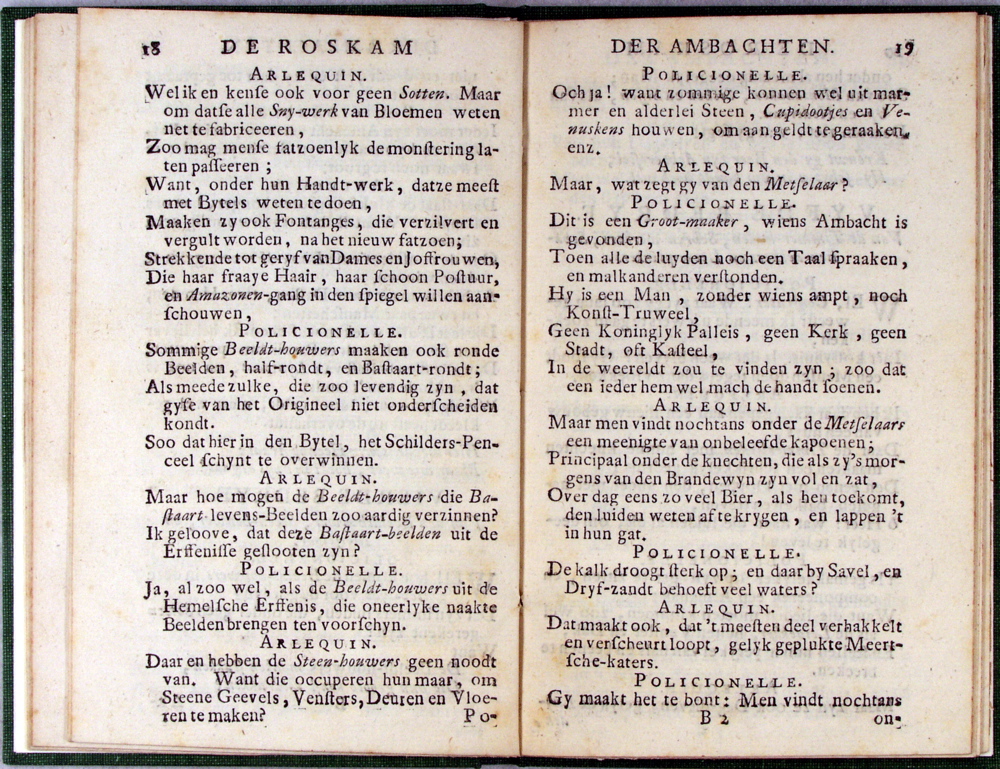 18 DE ROSKAM
ARLEQUIN.
Wel ik en kenſe ook voor geen Sotten. Maar
om datſe alle Sny-werk van Bloemen weten
net te fabriceeren,
Zoo mag menſe fatzoenlyk de monſtering la-
ten paſſeeren;
Want, onder hun Handt-werk, datze meeſt
met Bytels weten te doen,
Maaken zy ook Fontanges, die verzilvert en
vergult worden, na het nieuw fatzoen;
Strekkende tot geryf van Dames en Joffrouwen,
Die haar fraaye Haair, haar ſchoon Poſtuur,
en Amazonen-gang in den ſpiegel willen aan-
ſchouwen,
POLICIONELLE.
Sommige Beeldt-houwers maaken ook ronde
Beelden, half-rondt, en Baſtaart-rondt;
Als meede zulke, die zoo levendig zyn, dat
gyſe van het Origineel niet onderſcheiden
kondt.
Soo dat hier in den Bytel, het Schilders-Pen-
ceel ſchynt te overwinnen.
ARLEQUIN.
Maar hoe mogen de Beeldt-houwers die Ba-
ſtaart levens-Beelden zoo aardig verzinnen?
Ik geloove, dat deze Baſtaart-beelden uit de
Erffeniſſe geſlooten zyn?
POLICIONELLE.
Ja, al zoo wel, als de Beeldt-houwers uit de
Hemelſche Erffenis, die oneerlyke naakte
Beelden brengen ten voorſchyn.
ARLEQUIN.
Daar en hebben de Steen-houwers geen noodt
van. Want die occuperen hun maar, om
Steene Geevels, Venſters, Deuren en Vloe-
ren te maken?
Po-
DER AMBACHTEN. 19
POLICIONELLE.
Och ja! want zommige konnen wel uit mar-
mer en alderlei Steen, Cupidootjes en Ve-
nuskens houwen, om aan geldt te geraaken,
enz.
ARLEQUIN.
Maar, wat zegt gy van den Metſelaar?
POLICIONELLE.
Dit is een Groot-maaker, wiens Ambacht is
gevonden,
Toen alle de luyden noch een Taal ſpraaken,
en malkanderen verſtonden.
Hy is een Man, zonder wiens ampt, noch
Konſt-Truweel,
Geen Koninglyk Palleis, geen Kerk, geen
Stadt, oft Kaſteel,
In de weereldt zou te vinden zyn; zoo dat
een ieder hem wel mach de handt ſoenen.
ARLEQUIN.
Maar men vindt nochtans onder de Metſelaars
een meenigte van onbeleefde kapoenen;
Principaal onder de knechten, die als zy's mor-
gens van den Brandewyn zyn vol en zat,
Over dag eens zo veel Bier, als hen toekomt,
den luiden weten af te krygen, en lappen 't
in hun gat.
POLICIONELLE.
De kalk droogt ſterk op; en daar by Savel, en
Dryf-zandt behoeft veel waters?
ARLEQUIN.
Dat maakt ook, dat 't meeſten deel verhakkelt
en verſcheurt loopt, gelyk geplukte Meert-
ſche-katers.
POLICIONELLE.
Gy maakt het te bont: Men vindt nochtans
B 2 on-